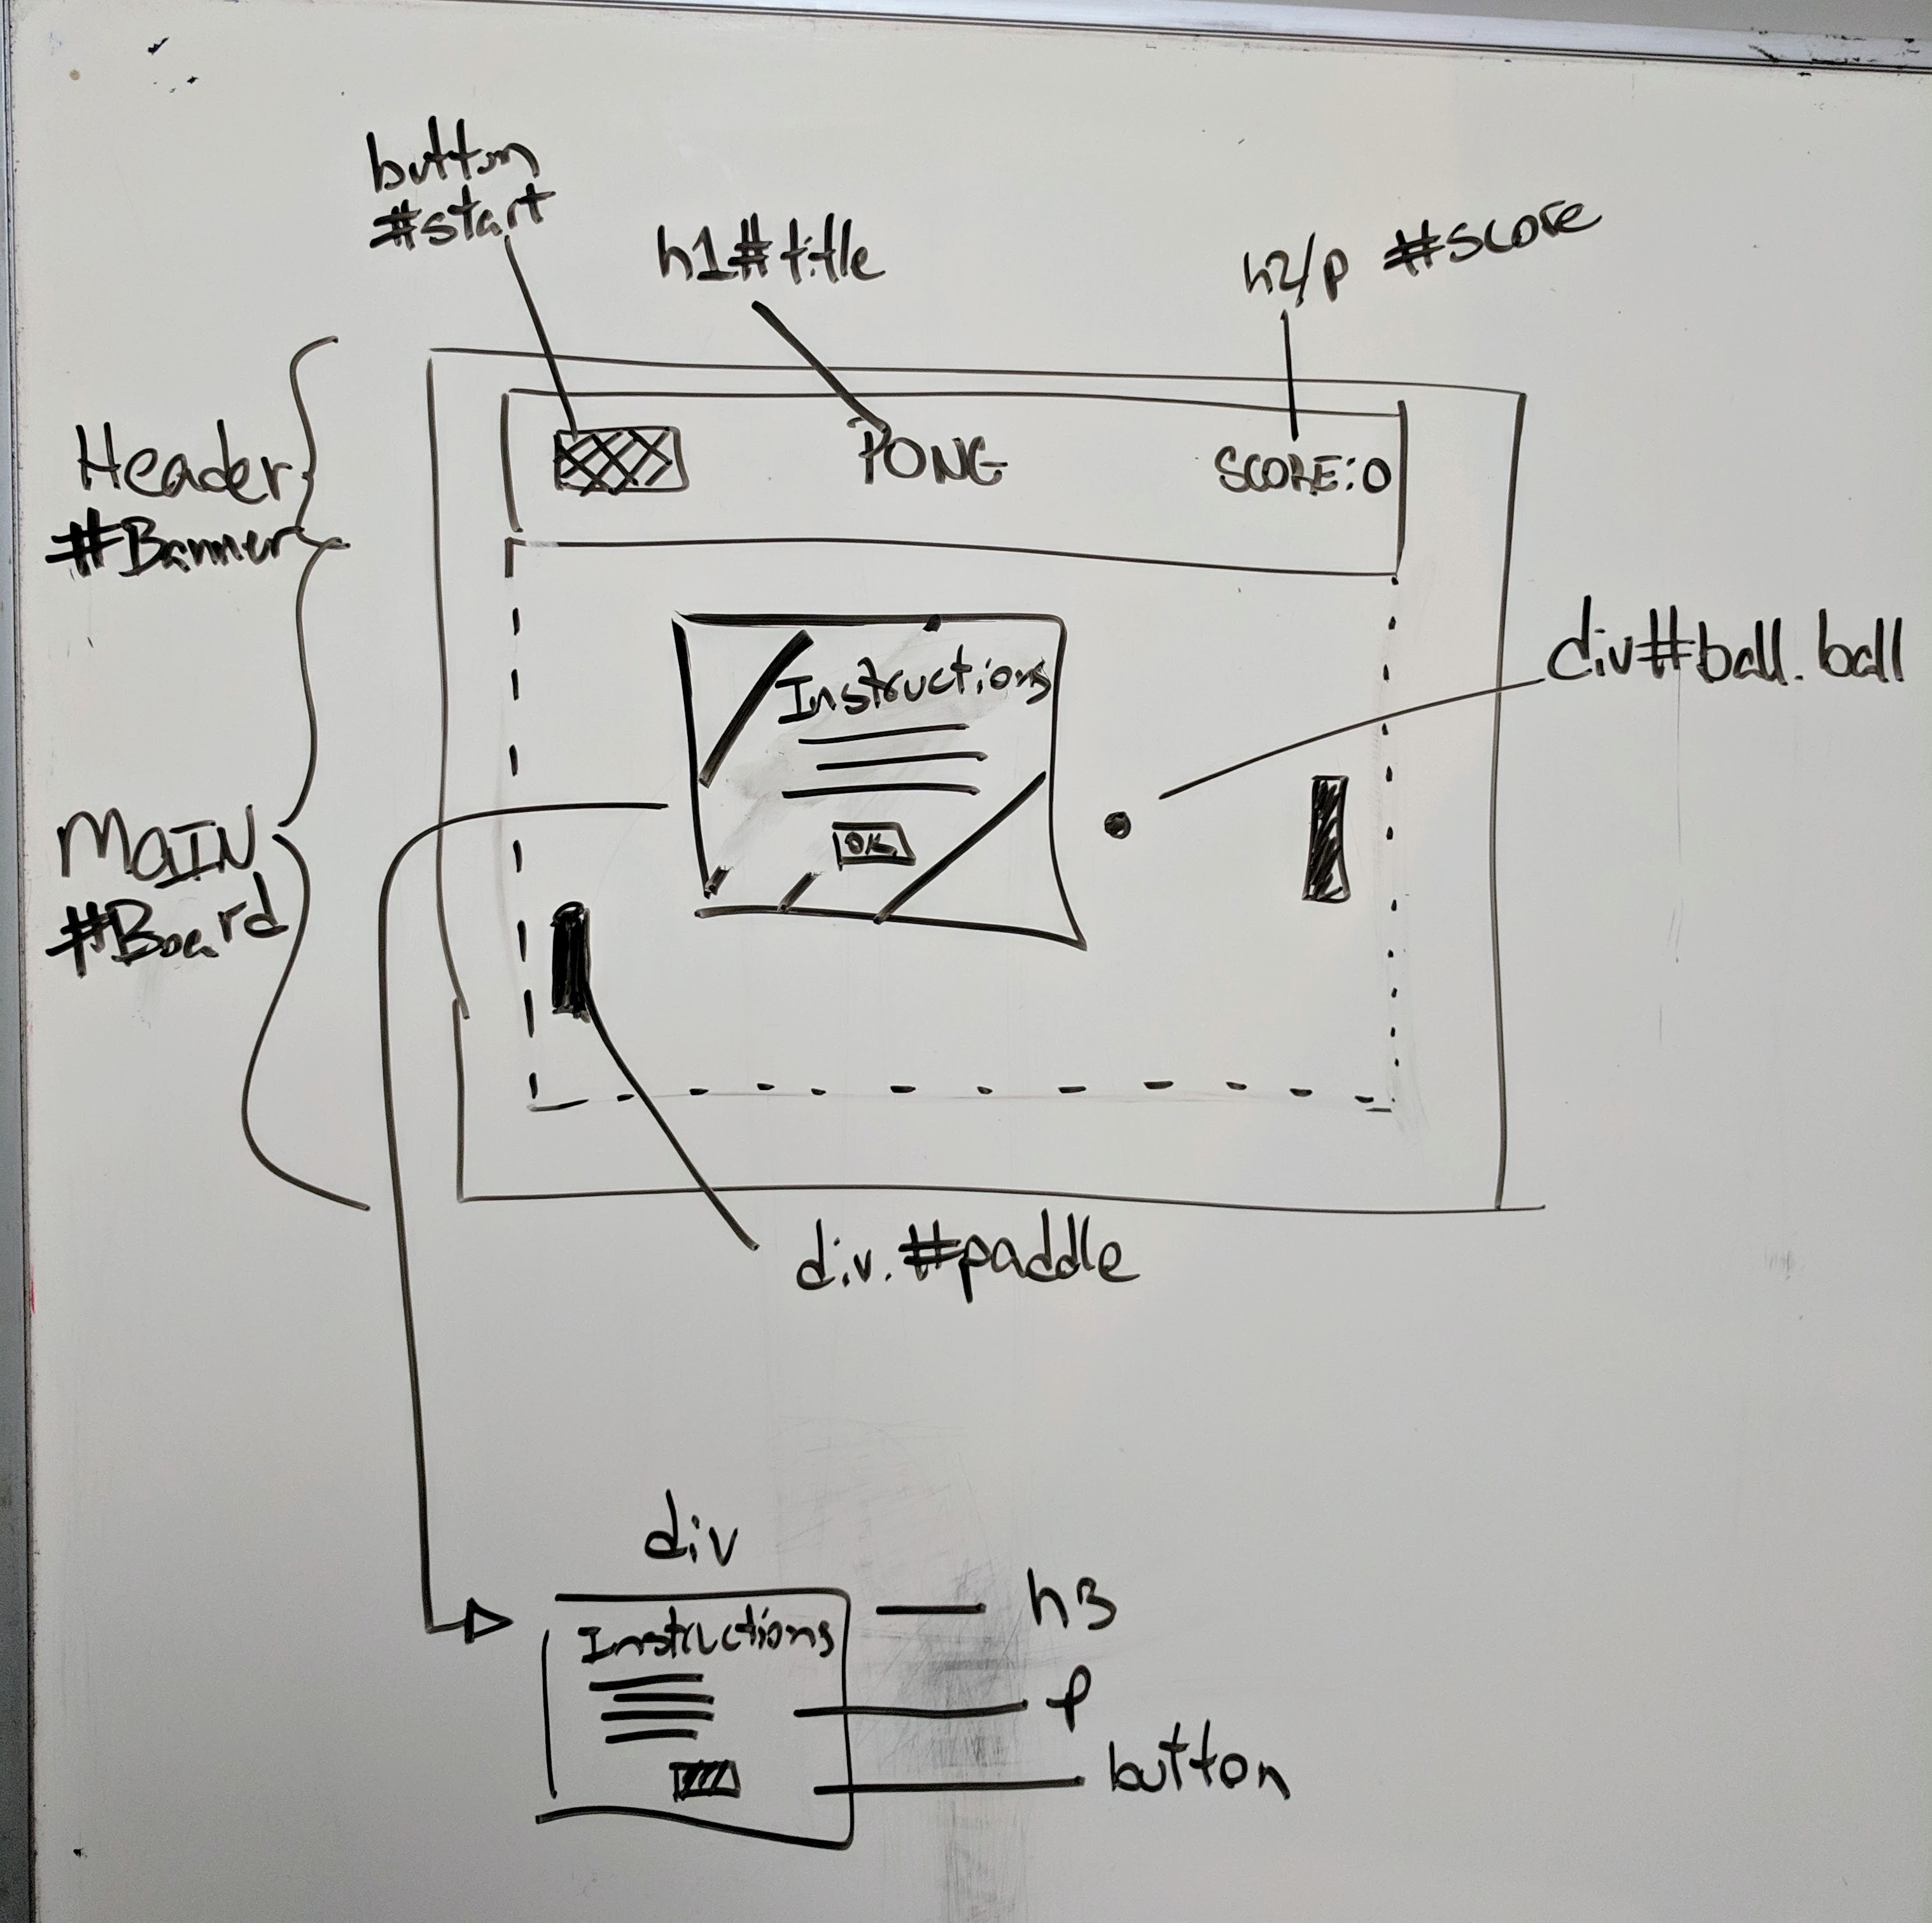 button
#start
h1#title
h2/p #score
Header
#Banner
PONG
SCORE:0
Instructions
OK
div#ball.ball
MAIN
#Board
div.#paddle
div
Instructions
h3
p
button